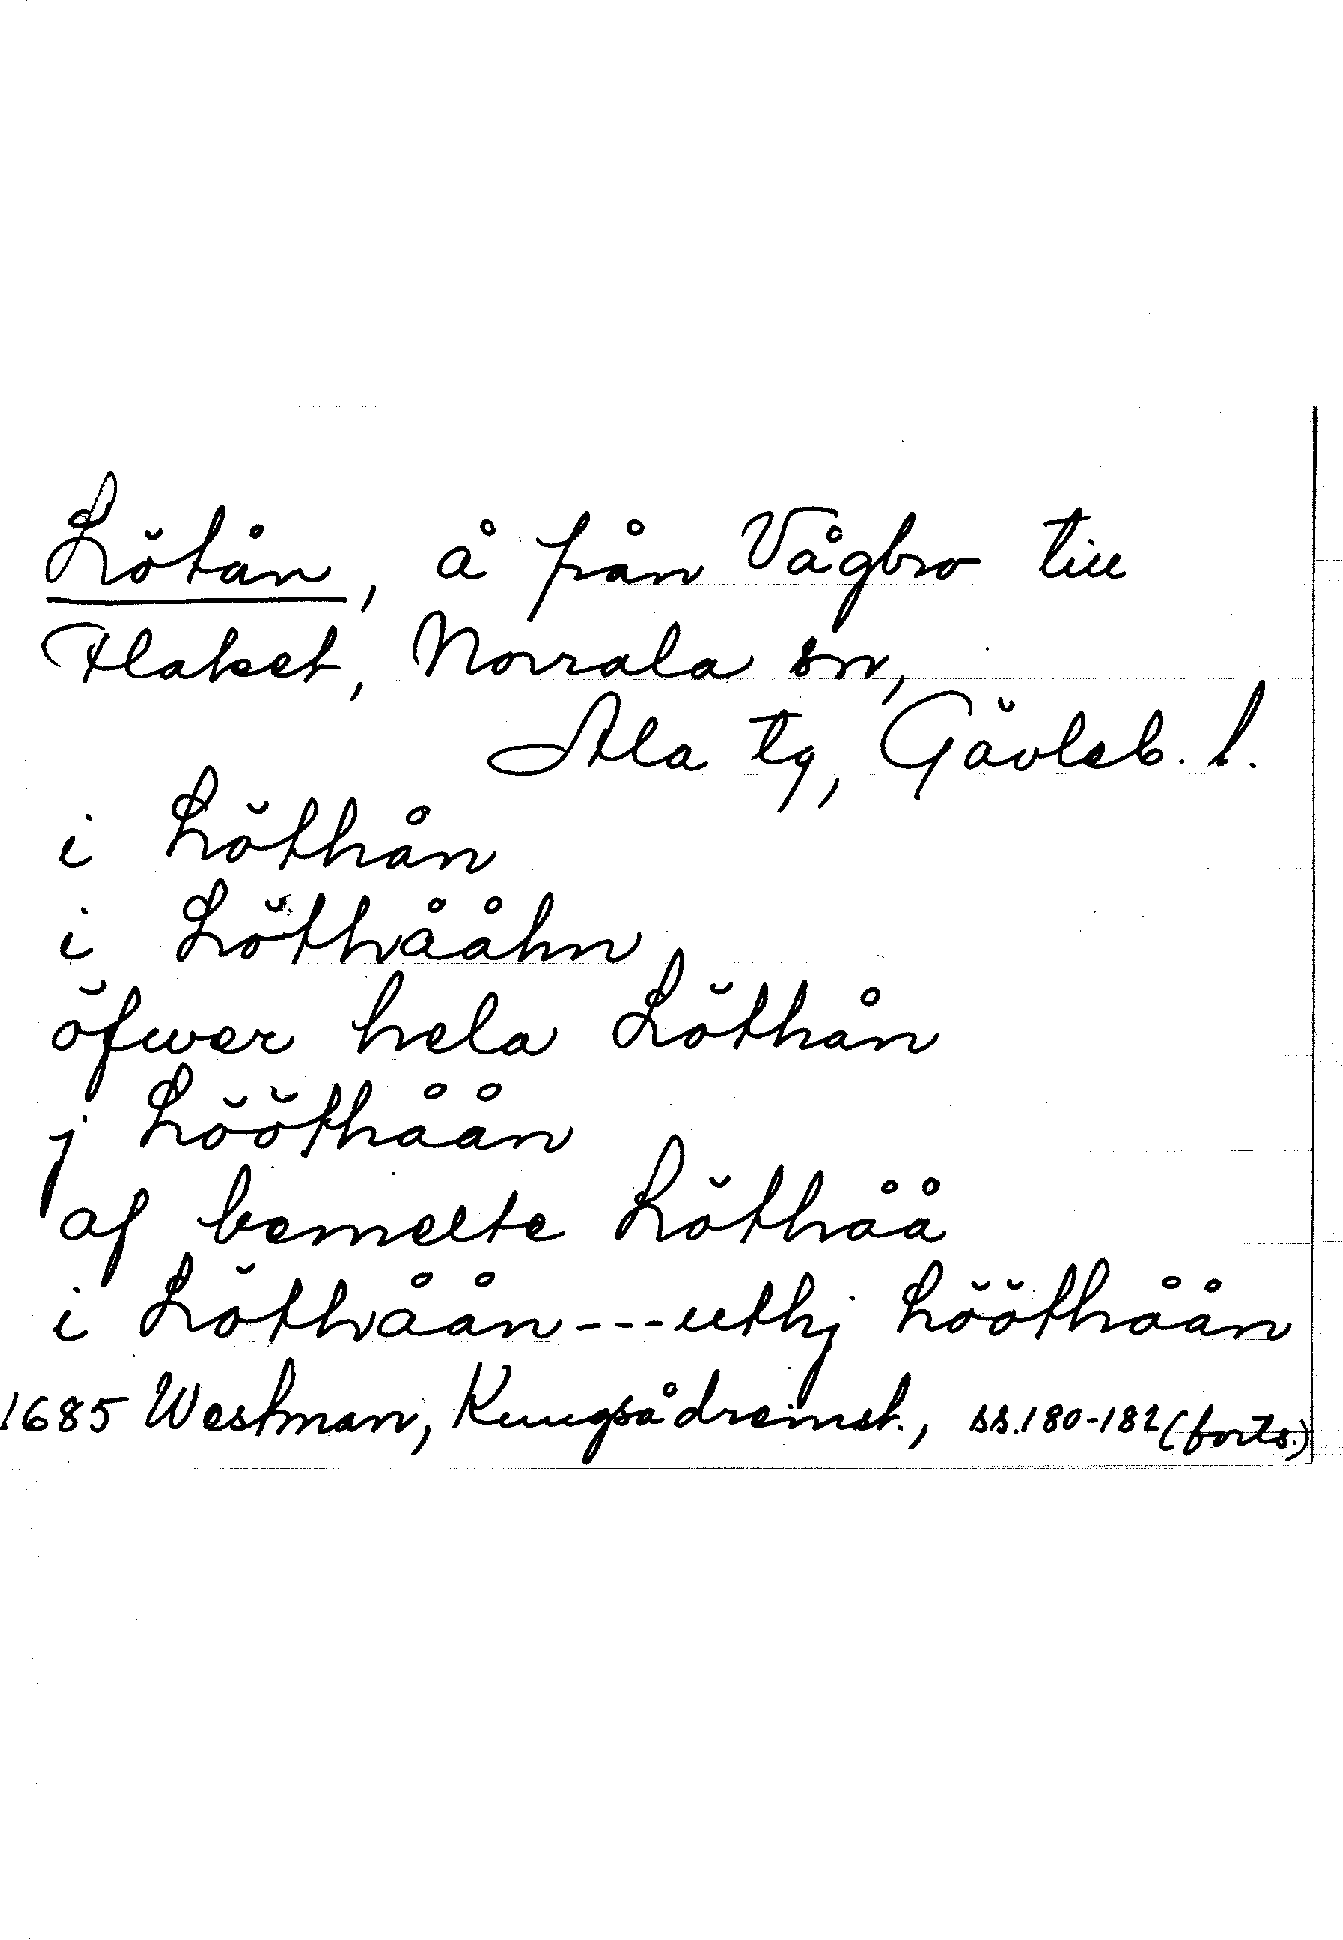 Lötån, å från Vågbro till
Flaket, Norrala sn,
Ala tg, Gävleb. l.
i Löthån
i Löthååhn
öfwer hela Löthån
j Lööthåån
af bemelte Löthåå
i Löthåån---uthj Lööthåån
1685 Westman, Kungsådreinst., ss.180-182 (forts.)